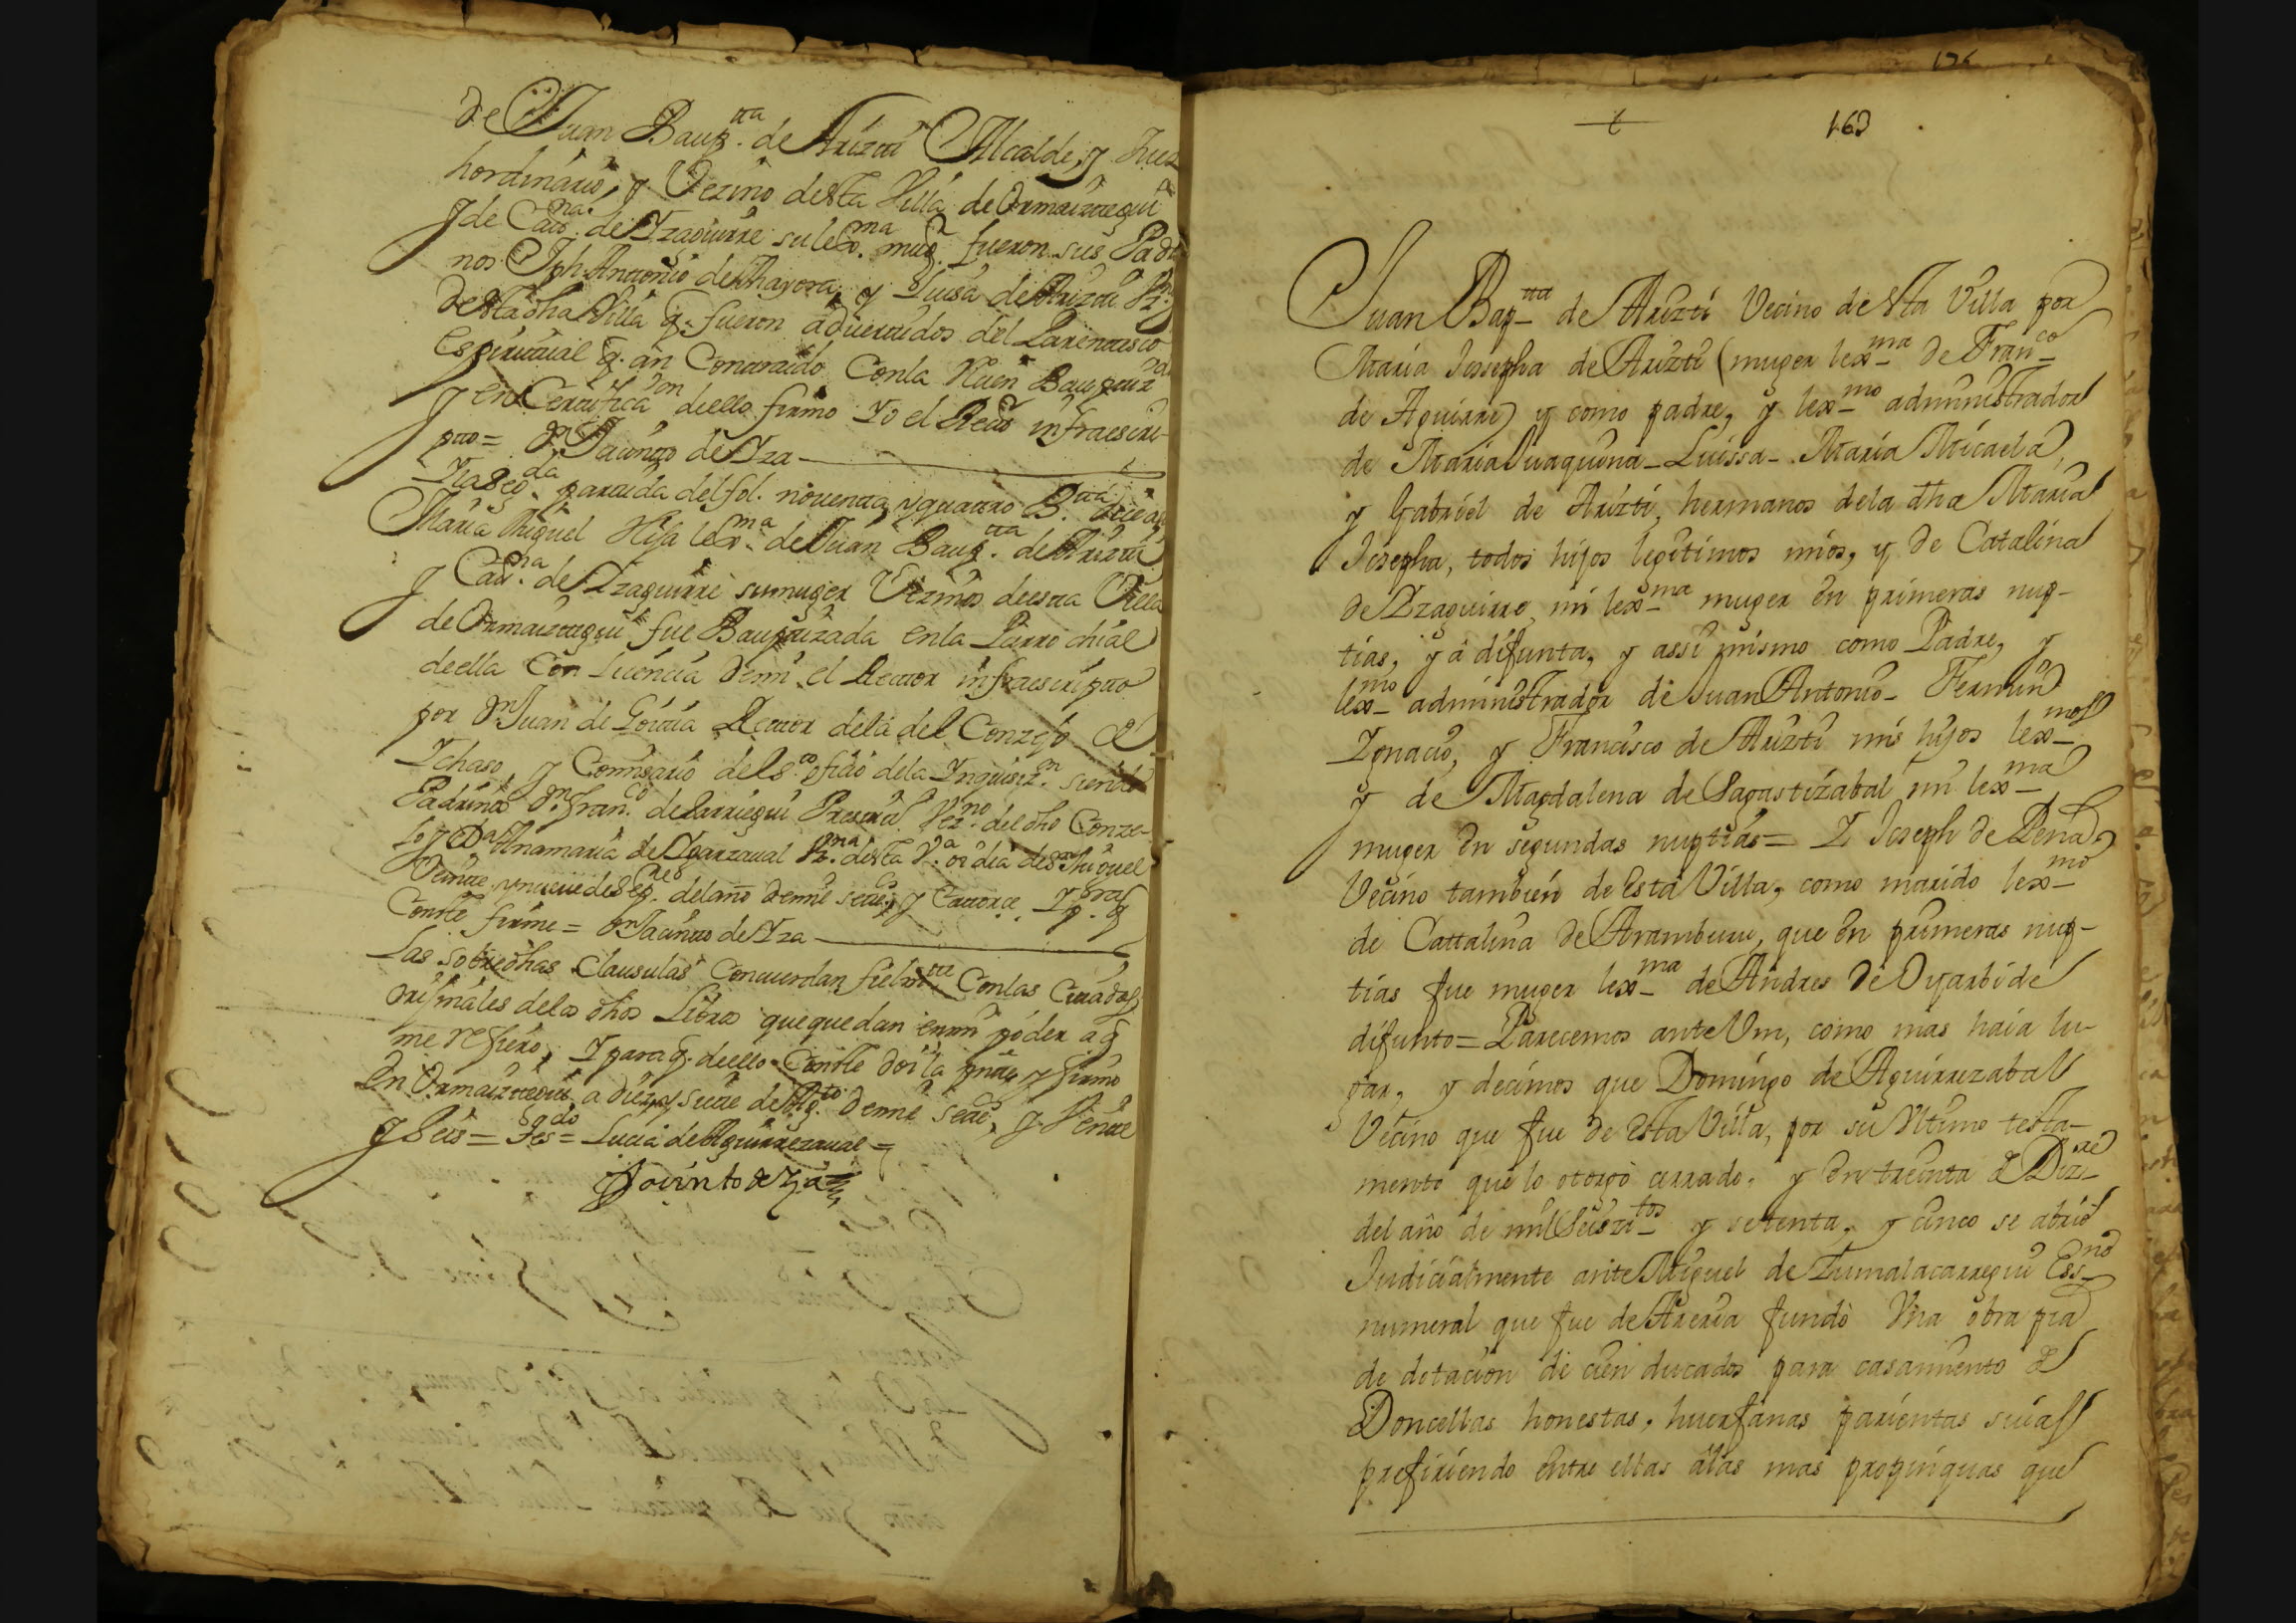 de Juan Baup.tta de Arizti Alcalde, y Juez
hordinario, y Vezino desta Villa de Ormaiztegui
y de Cat.na de Yzaguirre su lex.ma mug.r fueron sus Padri
nos Jph Antonio de Mayora, y Luisa de Arizti Vz.s
desta dha Villa q.e fueron advertidos del Parentesco
espiritual q. an Contraido Con la Rezien Bauptiz.da
y en Certifica.on de ello firmo Yo el Rec.or infraescri-
pto = Dn Jacinto de Yza
Yla Seg.da partida del fol. noventa y quattro B.tta dice asi
Maria Miguel Hija lex.ma de Juan Baup.tta de Arizti
y Cat.na de Yzaguirre su muger Vezinos de esta Villa
de Ormaiztegui fue Bauptizada en la Parrochial
de ella Con Licencia de mi el Rector infraescripto
por Dn Juan de Goitia Rector de la del Conzejo de
Ichaso, y Comisario del S.to ofizio de la Ynquisiz.on siendo
Padrinos Dn Fran.co de Larriegui Presvit.o Vez.no del dho Conze-
jo y D.a Ana maria de Ygarzaval Vz.na desta V.a oi dia de Sn Miguel
Veinte y nueve de Sep.re del año de mil sete.os y Catorce. Y p.a q
Conste firme = Dn Jacinto de Yza
Las sobredhas Clausulas Concuerdan fielm.te Con las Citadas
orijinales de los dhos Libros que quedan en mi poder a q
me refiero, Y para q. de ello Conste doi la pnte y firmo
En Ormaiztegui a diez y siete de Ag.to de mil sete.os y Veinte
y Seis = Tes.do = Lucia de Aguirrezaval =
Jacinto de Yza
163
Juan Bap.tta de Arizti Vecino de esta Villa por
Maria Josepha de Arizti (muger lex.ma de Fran.co
de Aguirre) y como padre, y lex.mo administrador
de Maria Juaquina - Luissa - Maria Micaela,
y Gabriel de Arizti, hermanos de la dha Maria
Josepha, todos hijos legitimos mios, y de Catalina
de Yzaguirre, mi lex.ma muger en primeras nup-
tias, ya difunta, y assi mismo como Padre, y
lex.mo administrador de Juan Antonio - Fermin
Ignacio, y Francisco de Arizti mis hijos lex.mos
y de Magdalena de Sagastizabal mi lex.ma
muger en segundas nuptias = Y Joseph de Peña
Vecino tambien de esta Villa, como marido lex.mo
de Cattalina de Aramburu, que en primeras nup-
tias fue muger lex.ma de Andres de Oyarbide
difunto = Parecemos ante Vm, como mas haia lu-
gar, y decimos que Domingo de Aguirrezabal
Vecino que fue de esta Villa, por su Ultimo testa-
mento que lo otorgò cerrado, y en treinta de Diz.re
del año de mil Seiszi.tos y setenta, y cinco se abriò
Judicialmente ante Miguel de Zumalacarregui Ess.no
numeral que fue de Areria fundò Una obra pia
de dotacion de cien ducados para casamiento de
Doncellas honestas, huerfanas parientas suias
prefiriendo entre ellas alas mas propinquas que